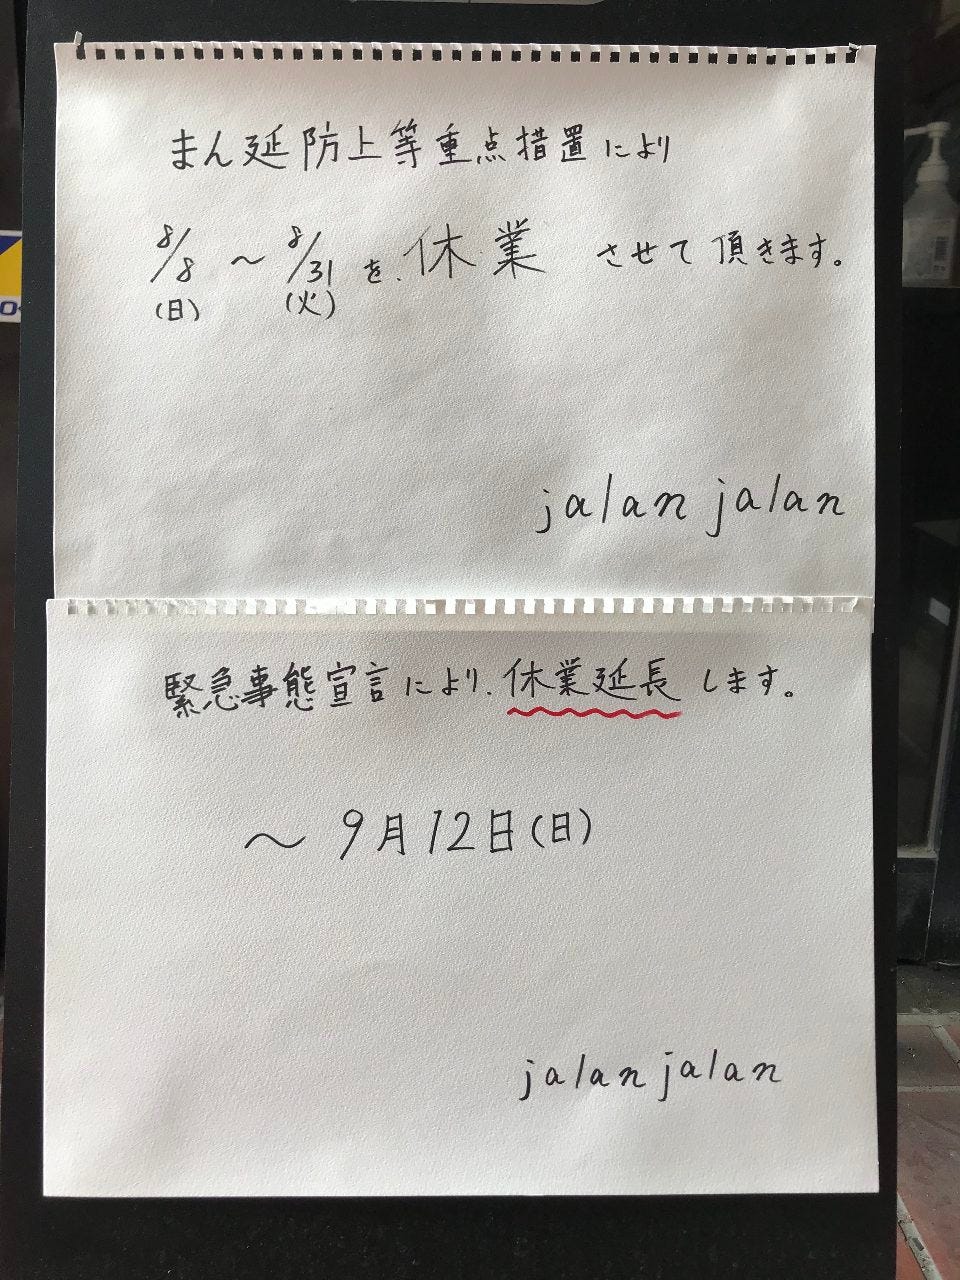 まん延防止等重点措置により
8/8 ～ 8/31 を、休業 させて頂きます。
(日) (火)
jalan jalan
緊急事態宣言により、休業延長します。
～ 9月12日(日)
jalan jalan